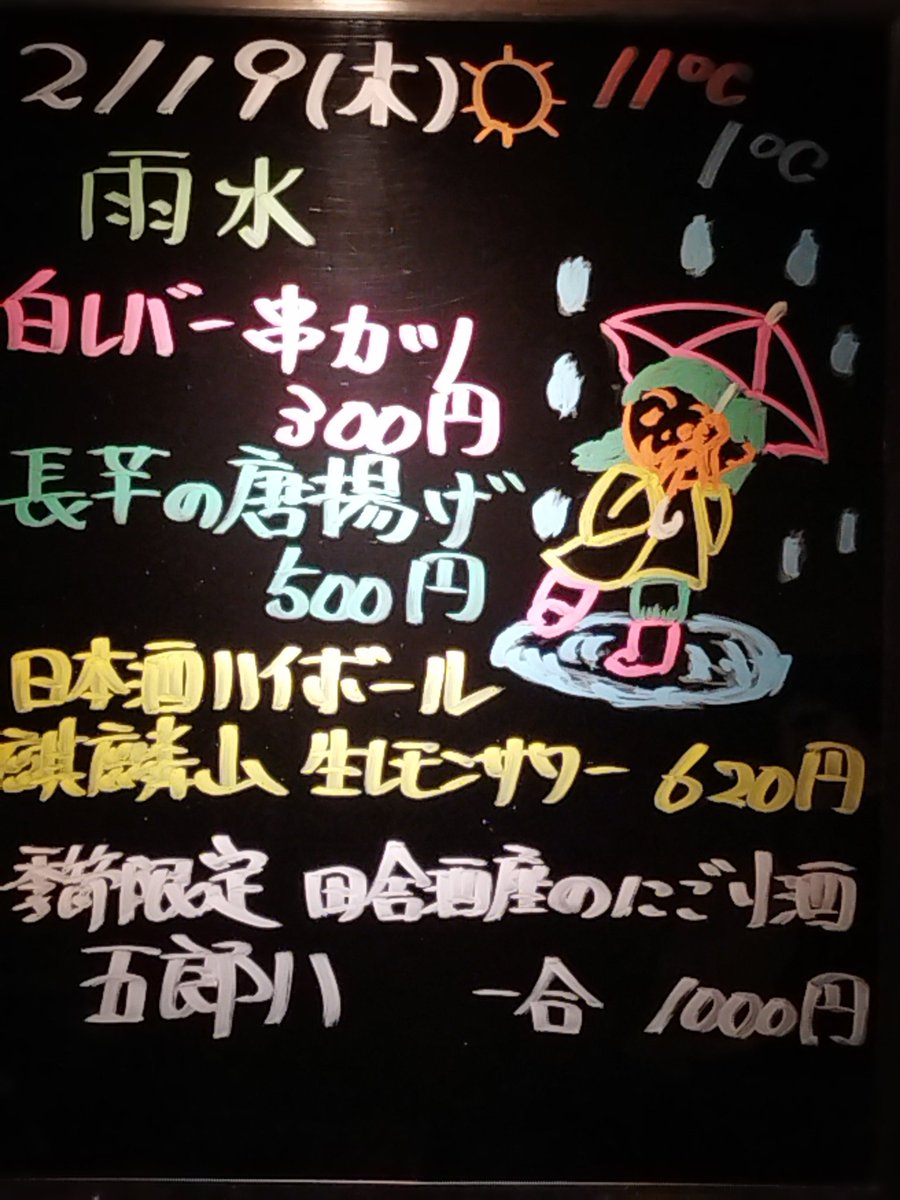 2/19(木) 11℃
1℃
雨水
白レバー串カツ
300円
長芋の唐揚げ
500円
日本酒ハイボール
麒麟山 生レモンサワー 620円
季節限定 田舎酒屋のにごり酒
五郎八 一合 1000円